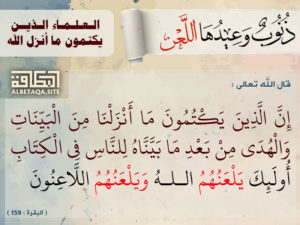 ذُنُوبٌ وَعِيدُهَا اللَّعْن
العلماء الذين
يكتمون ما أنزل الله
البطاقة
ALBETAQA.SITE
قال الله تعالى :
إِنَّ الَّذِينَ يَكْتُمُونَ مَا أَنْزَلْنَا مِنَ الْبَيِّنَاتِ
وَالْهُدَى مِنْ بَعْدِ مَا بَيَّنَّاهُ لِلنَّاسِ فِي الْكِتَابِ
أُولَئِكَ يَلْعَنُهُمُ اللهُ وَيَلْعَنُهُمُ اللَّاعِنُونَ
( البقرة : 159 )